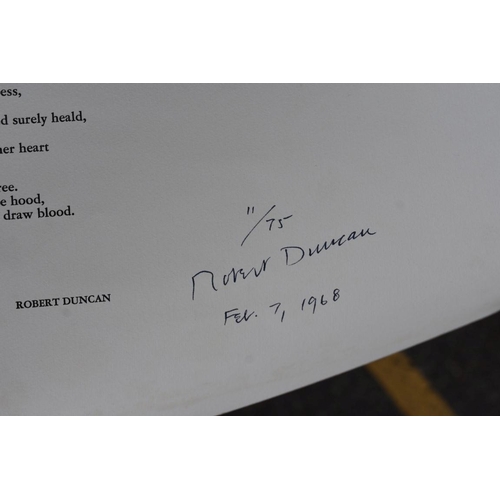 ess,
d surely heald,
her heart
ree.
e hood,
draw blood.
11/75
Robert Duncan
ROBERT DUNCAN
Feb. 7, 1968